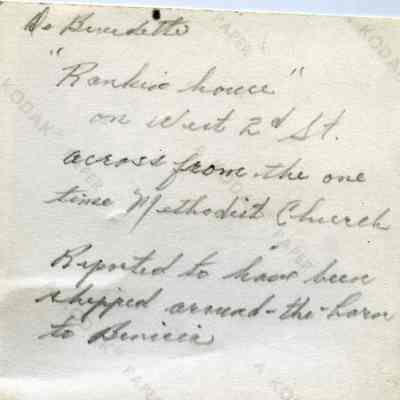 De Benedetti
"Rankin house"
on West 2d St.
across from the one
time Methodist Church
Reported to have been
shipped around-the-horn
to Benicia
A KODAK PAPER